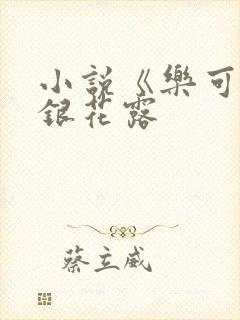 小說《樂可
銀花露
蔡立威